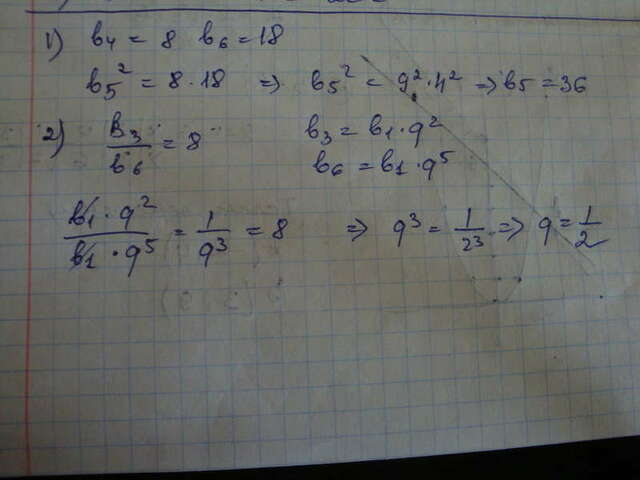 1) b₄ = 8 b₆ = 18
b₅² = 8 · 18 ⇒ b₅² = 9² · 4² ⇒ b₅ = 36
2) B₃/b₆ = 8 b₃ = b₁ · q²
b₆ = b₁ · q⁵
b₁ · q²/b₁ · q⁵ = 1/q³ = 8 ⇒ q³ = 1/2³ ⇒ q = 1/2